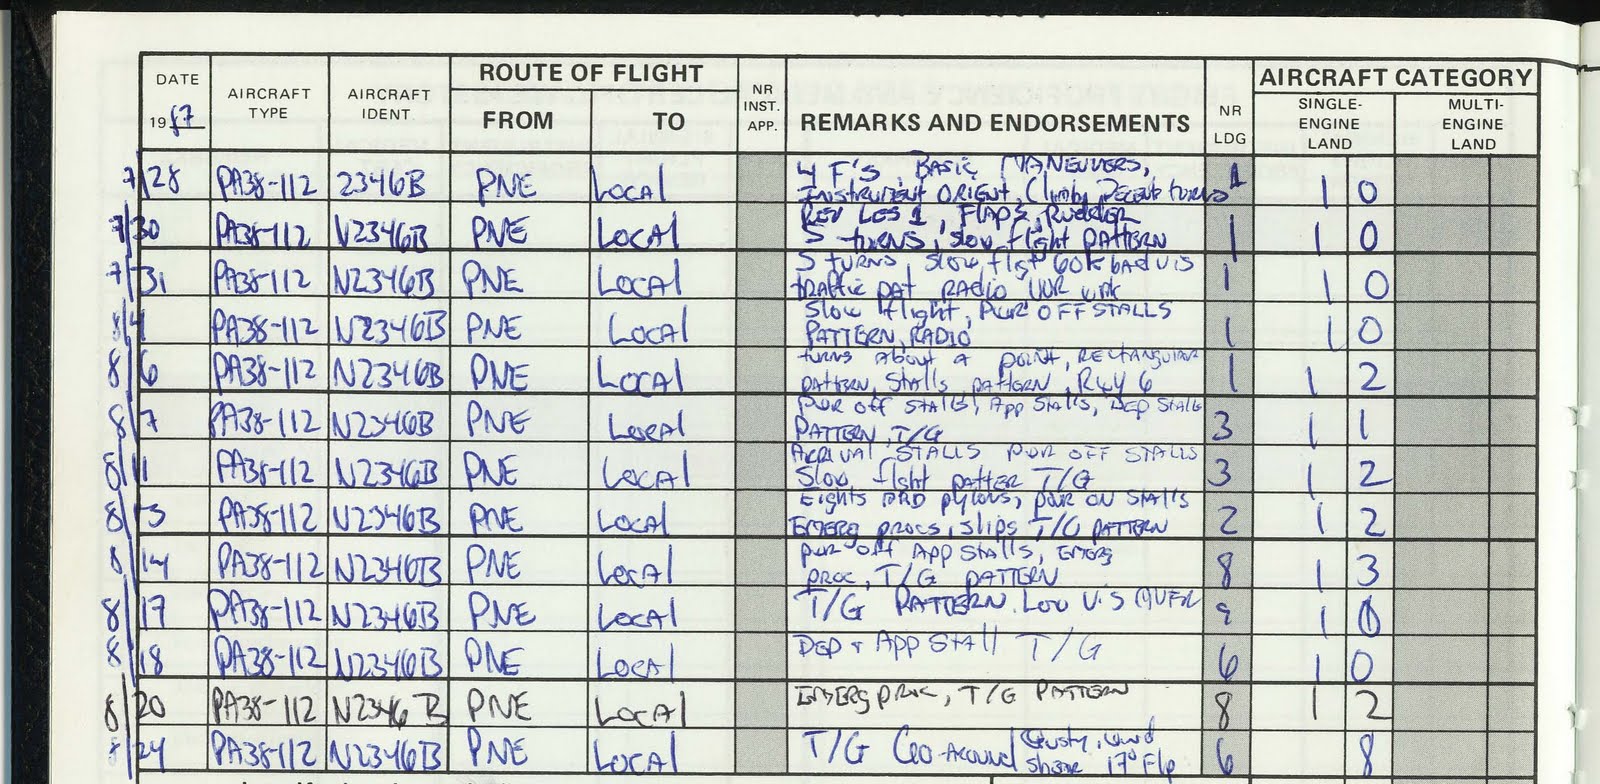 DATE 1987 AIRCRAFT TYPE AIRCRAFT IDENT. ROUTE OF FLIGHT FROM TO NR INST. APP. REMARKS AND ENDORSEMENTS NR LDG AIRCRAFT CATEGORY SINGLE-ENGINE LAND MULTI-ENGINE LAND
7/28 PA38-112 2346B PNE LOCAl 4 F'S, BASIC MANEUVERS, 1 1 0
INSTRUMENT ORIENT, Climb, Decent turns
7/30 PA38-112 N2346B PNE LOCAl REV LES 1, FLAPS, RUDDER 1 1 0
S turns, slow flight PATTERN
7/31 PA38-112 N2346B PNE LOCAl S TURNS, Slow flgt 60k bad vis 1 1 0
traffic pat RADIO
8/4 PA38-112 N2346B PNE LOCAl Slow flight, PWR OFF STALLS 1 1 0
PATTERN, RADIO
8/6 PA38-112 N2346B PNE LOCAl turns about a point, RECTANGULAR 1 1 2
pattern, Stalls, pattern, RWY 6
8/7 PA38-112 N2346B PNE LOCAl PWR off STALLS, App Stalls, Dep Stalls 3 1 1
PATTERN, T/G
8/11 PA38-112 N2346B PNE LOCAl ARRIVAL STALLS PWR OFF STALLS 3 1 2
Slow flght patter T/G
8/13 PA38-112 N2346B PNE LOCAl Eights pylons, pwr on Stalls 2 1 2
EMERG procs, slips T/G PATTERN
8/14 PA38-112 N2346B PNE LOCAl pwr off App Stalls, EMERG 8 1 3
PROC, T/G PATTERN
8/17 PA38-112 N2346B PNE LOCAl T/G PATTERN. LOW VIS 9 1 0
8/18 PA38-112 N2346B PNE LOCAl DEP + App Stall T/G 6 1 0
8/20 PA38-112 N2346B PNE LOCAl EMERG proc, T/G PATTERN 8 1 2
8/24 PA38-112 N2346B PNE LOCAl T/G Go-Around Gusty, wind 6 8
shear 17° Flp